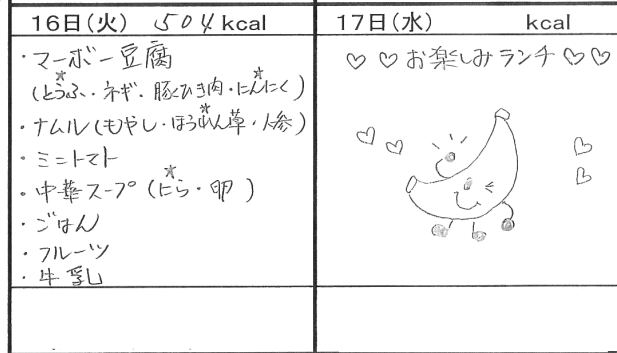 16日(火) 504 kcal
・マーボー豆腐
(とうふ・ネギ・豚ひき肉・にんにく)
・ナムル(もやし・ほうれん草・人参)
・ミニトマト
・中華スープ(にら・卵)
・ごはん
・フルーツ
・牛乳
17日(水) kcal
♡♡お楽しみランチ♡♡